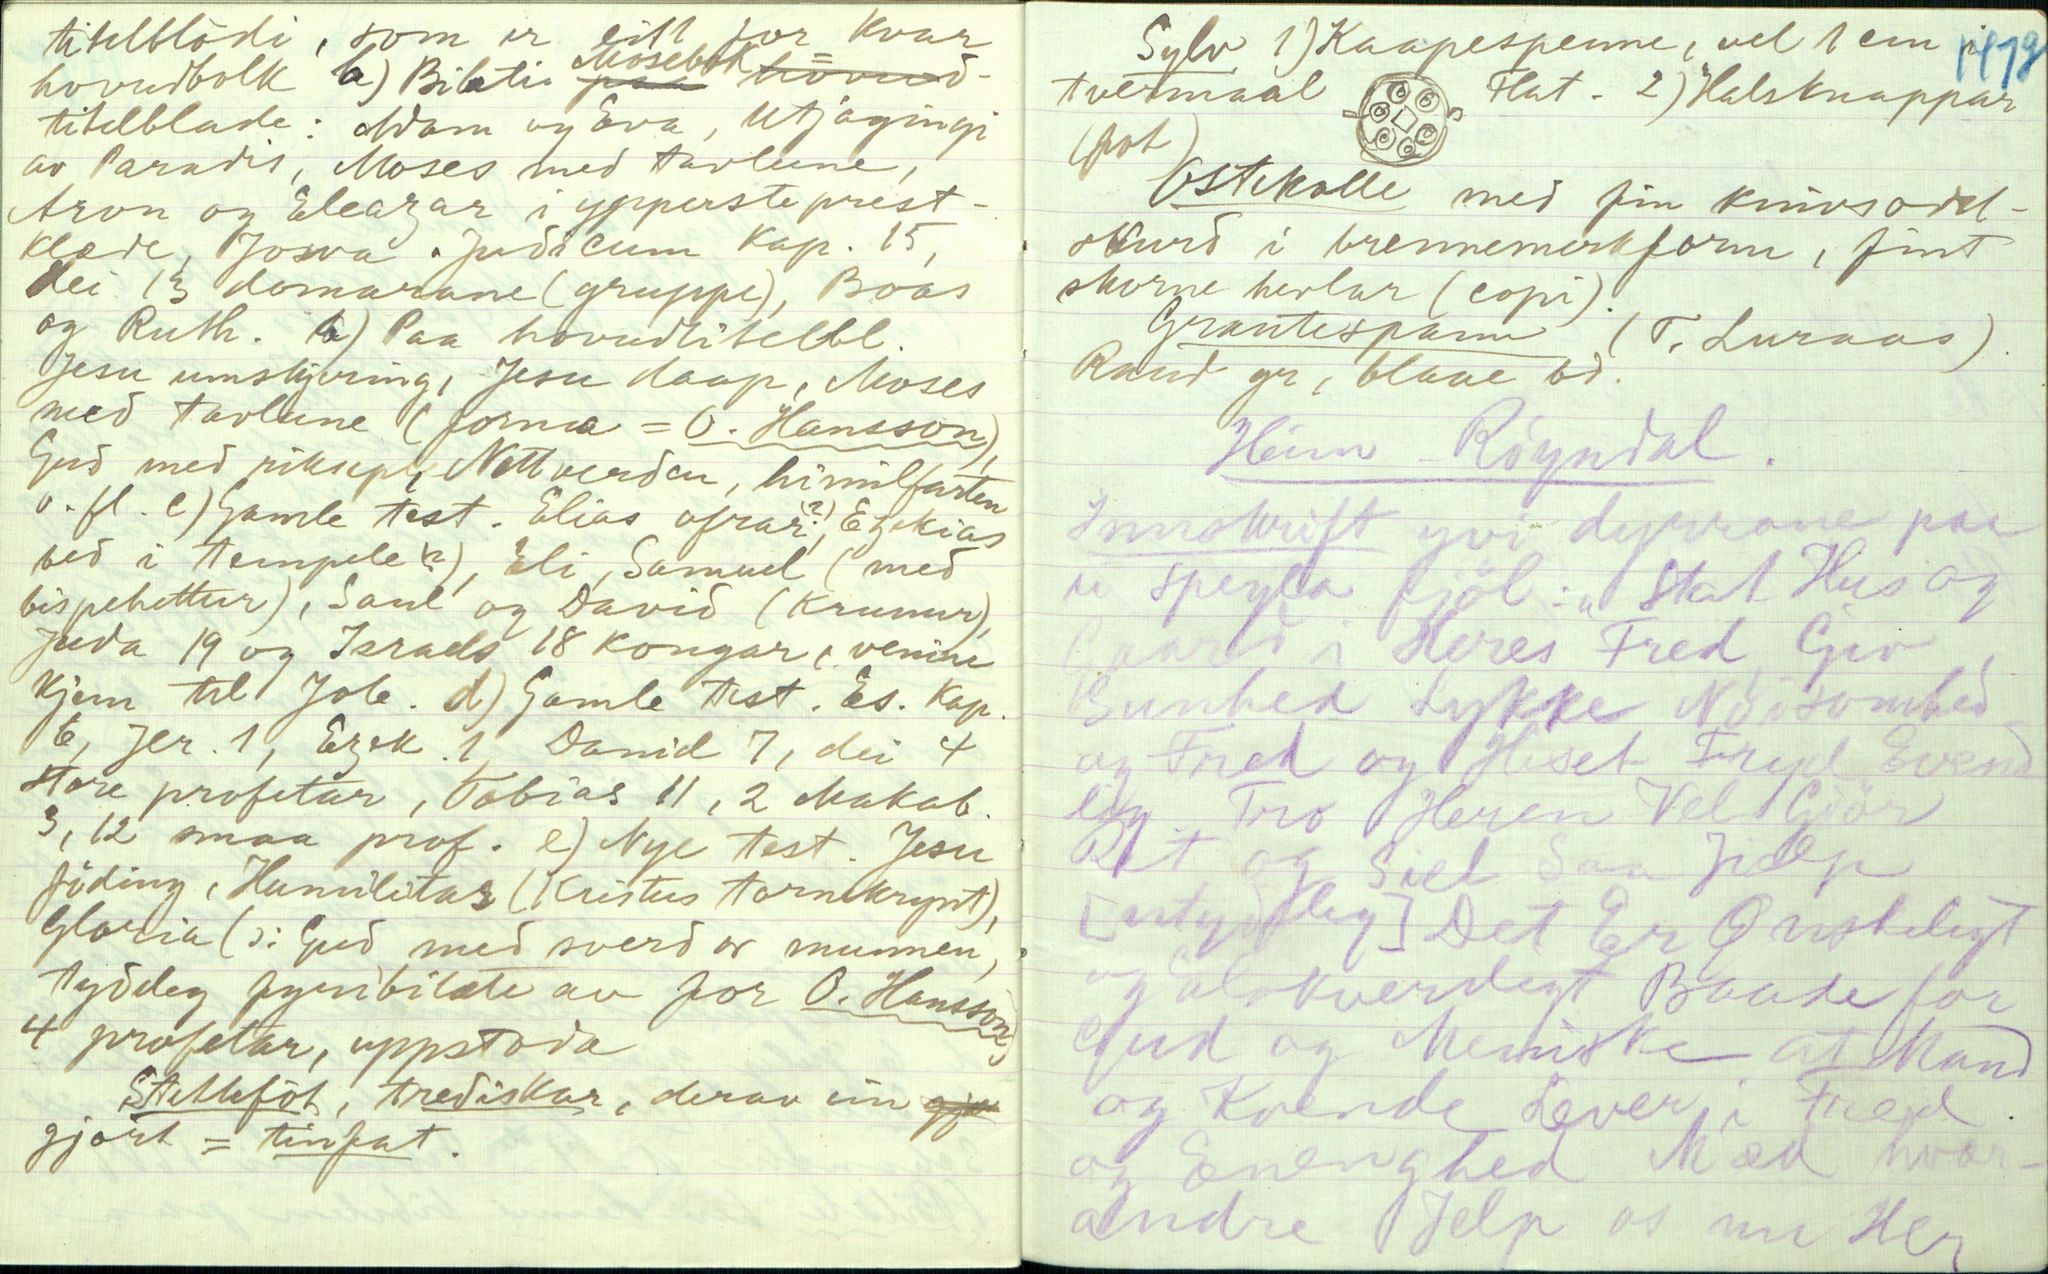 titelblödi, som er eitt for kvar
hovudbolk a) Bilæti Mosebok = hovud-
titelblade: Adam og Eva, Utjagingi
av Paradis, Moses med tavlune,
Aron og Eleazar i yppersteprest-
klæde, Josva. Judicum Kap. 15,
dei 13 domarane (gruppe), Boas
og Ruth. b) Paa hovudtitelbl.
Jesu umskjering, Jesu daap, Moses
med tavlune (forma = O. Hansson),
Gud med riksepl, Nattverden, himilfarten
o. fl. c) Gamle test. Elias ofrar(?), Ezekias
bed i tempele(?), Eli, Samuel (med
bispehettur), Saul og David (krunur),
Juda 19 og Israels 18 kongar, venine
kjem til Job. d) Gamle test. Es. Kap.
6, Jer. 1, Ezek. 1, Daniel 7, dei 4
store profetar, Tobias 11, 2 Makab.
3, 12 smaa prof. e) Nye test. Jesu
föding, Humilitas (Kristus tornekrynt),
Gloria (ɔ: Gud med sverd or munnen,
tydeleg fyeribilæte av for O. Hansson)
4 profetar, uppstoda
Stetteföt, trediskar, derav ein
gjort = tinfat.
1479
Sylv 1) Kaapespenne, vel 1 cm i
tvermaal Flat - 2) Halsknappar
(pot)
Ostekolle med fin knivsodd-
skurd i brennemerkform, fint
skorne hevlar (copi).
Grautespann (T. Luraas).
Raud gr, blaae bd.
Heim - Röyndal.
Innskrift yvi dyrrane paa
ei spegla fjöl: „Stat Hus og
Gaard i Heres Fred Giv
Sunhed Lykke Nöisomhed
og Fred og Huset Fryd Evend
lig Tro Heren Vel Giör
Alt og Siel Saa Jielp
[utydeleg] Det Er Ønskeligt
og Elskverdigt Baade for
Gud og Meniske at Mand
og Kvende Lever i Fred
og Eenenghed Med hver-
andre Jelp os nu Her